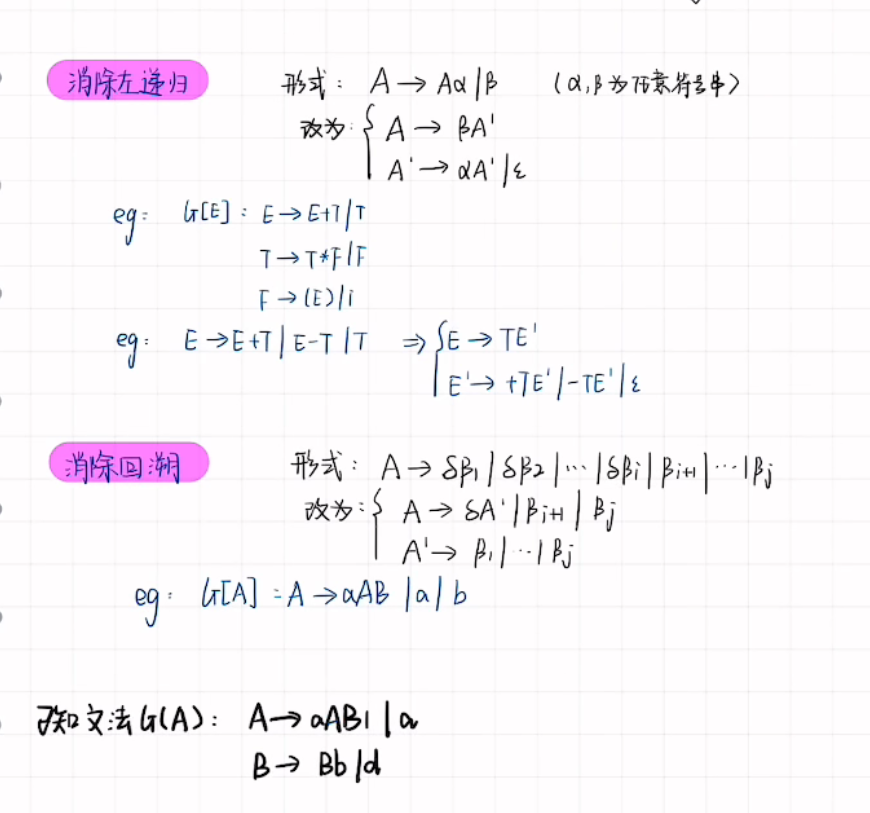 消除左递归 形式： A → Aα | β （α,β为任意符号串）
改为： { A → βA'
A' → αA' | ε
eg： G[E]： E → E+T | T
T → T*F | F
F → (E) | i
eg： E → E+T | E-T | T ⇒ { E → TE'
E' → +TE' | -TE' | ε
消除回溯 形式： A → δβ1 | δβ2 | … | δβi | βi+1 | … | βj
改为： { A → δA' | βi+1 | βj
A' → β1 | … | βj
eg： G[A]： A → aAB | a | b
已知文法G(A)： A → aABl | a
B → Bb | d